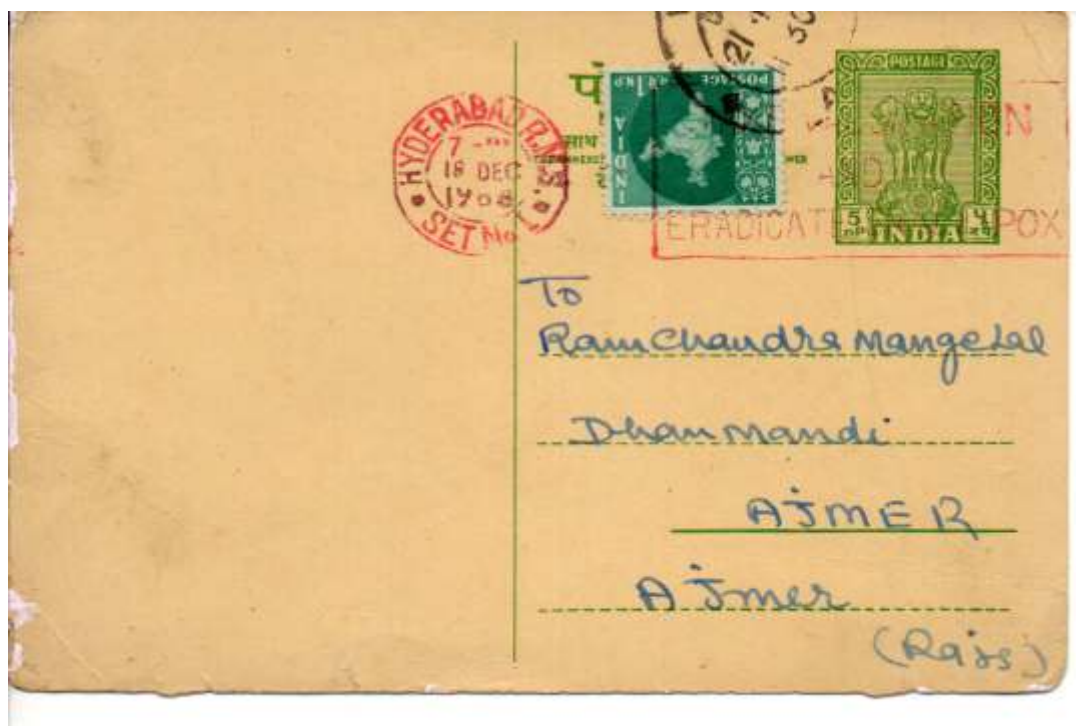 HYDERABAD R.M.S.
7
18 DEC
SET No
POSTAGE
1 N.P.
INDIA
21
साथ
POSTAGE
5
५
INDIA
ERADICATE POX
To
RamChandra Mangelal
Dhan Mandi
AJMER
Ajmer
(Rajs)